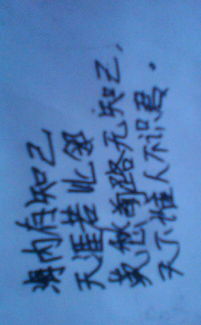 海内存知己
天涯若比邻
莫愁前路无知己，
天下谁人不识君。